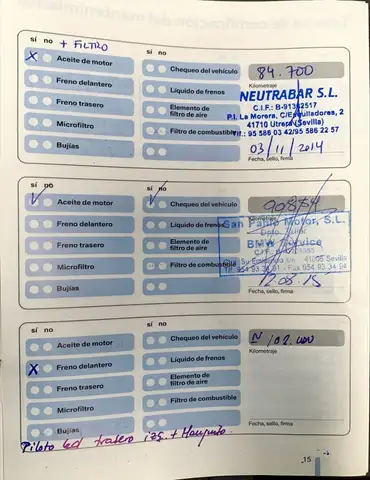 sí no + FILTRO
sí no
X Aceite de motor
Freno delantero
Freno trasero
Microfiltro
Bujías
Chequeo del vehículo
Líquido de frenos
Elemento de
filtro de aire
Filtro de combustible
84.700
Kilometraje
NEUTRABAR S.L.
C.I.F.: B-91382517
P.I. La Morera, C/Esquiladores, 2
41710 Utrera (Sevilla)
Tlf.: 95 586 03 42/95 586 22 57
03/11/2014
Fecha, sello, firma
sí no
sí no
Aceite de motor
Freno delantero
Freno trasero
Microfiltro
Bujías
Chequeo del vehículo
Líquido de frenos
Elemento de
filtro de aire
Filtro de combustible
Kilometraje
San Pablo Motor, S.L.
Dpto. Taller
BMW Service
C.I.F.
41096 Sevilla
Tlf. 954 93 34 91 - Fax 954 93 34 94
12.08.15
Fecha, sello, firma
sí no
sí no
Aceite de motor
X Freno delantero
Freno trasero
Microfiltro
Bujías
Chequeo del vehículo
Líquido de frenos
Elemento de
filtro de aire
Filtro de combustible
N 102.000
Kilometraje
Fecha, sello, firma
Piloto led trasero izq. + Manguito
15